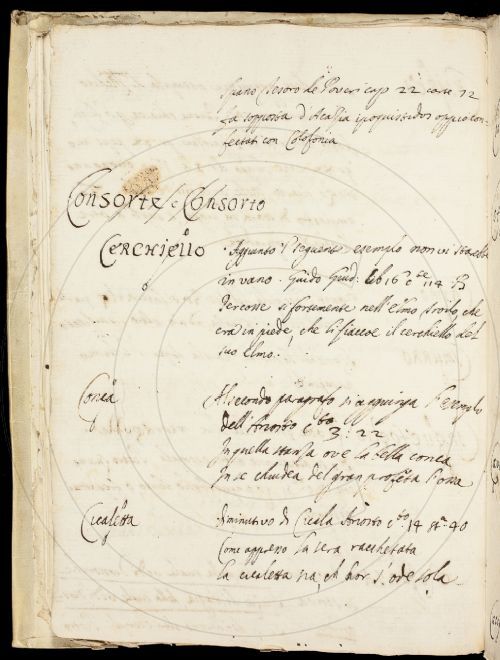 spano Tesoro de Poveri cap 22 carte 12
fa sopposta d'Acassia ipoquistidos oppio con-
fectat con Colofonia
Consorte, e Consorto
Cerchiello
Aggiunto l seguente esempio non vi starebbe
in vano. Guido Giud: lib 16 cte 114 B
Percosse si fortemente nell'elmo troilo, che
era in piede, che li fiaccoe il cerchiello del
suo elmo.
Conca
Al secondo paragrafo si aggiunga l'esempio
dell'Ariosto cto 3: 22
In quella stanza ove la bella conca
In se chiudea del gran profeta l'ossa
Cicaletta
diminutivo di Cicala Ariosto cto 14 sta 40
Come appresso la sera racchetata
la cicaletta sia, ch hor s'ode sola